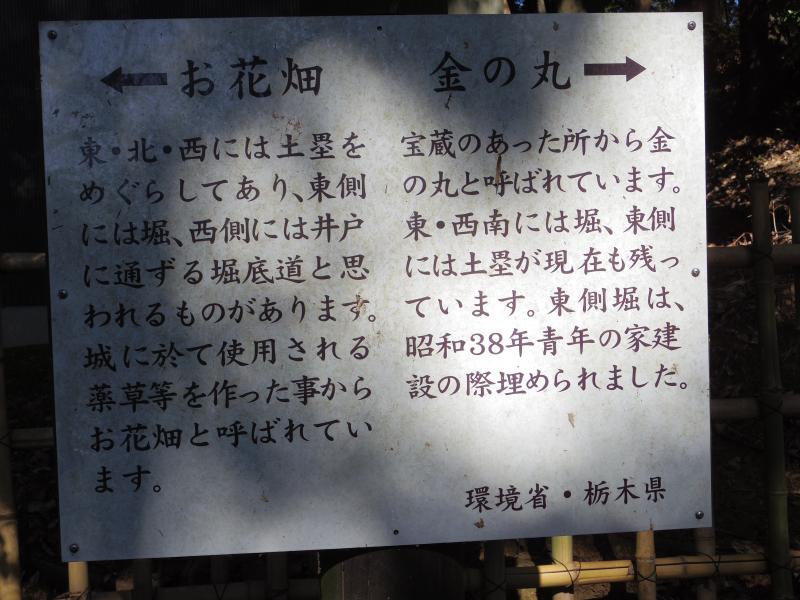 ← お花畑
東・北・西には土塁を
めぐらしてあり、東側
には堀、西側には井戸
に通ずる堀底道と思
われるものがあります。
城に於て使用される
薬草等を作った事から
お花畑と呼ばれてい
ます。
金の丸 →
宝蔵のあった所から金
の丸と呼ばれています。
東・西南には堀、東側
には土塁が現在も残っ
ています。東側堀は、
昭和38年青年の家建
設の際埋められました。
環境省・栃木県